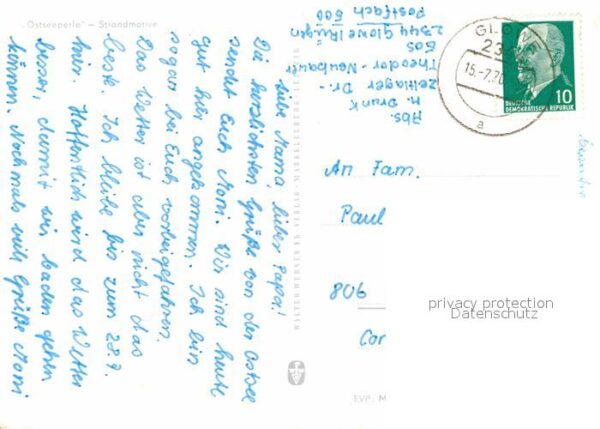 „Ostseeperle“ – Strandmotive
Liebe Mama lieber Papa!
Die herzlichsten Grüße von der Ostsee
sendet Euch Moni. Wir sind heute
gut hier angekommen. Ich bin
sogar bei Euch vorbeigefahren.
Das Wetter ist aber nicht das
beste. Ich bleibe bis zum 28.7.
hier. Hoffentlich wird das Wetter
besser, damit wir baden gehen
können. Nochmals viele Grüße Moni
Abs.
M. Drunk
Zeltlager Dr.-
Theodor Neubauer
SOS
2344 Glowe/Rügen
Postfach 500
GLO
15.-7.70
a
DEUTSCHE
DEMOKRATISCHE REPUBLIK
10
An Fam.
Paul
806
Cor
WALTER WERNER KG VERLAG · MARKKLEEBERG
EVP: M
privacy protection
Datenschutz